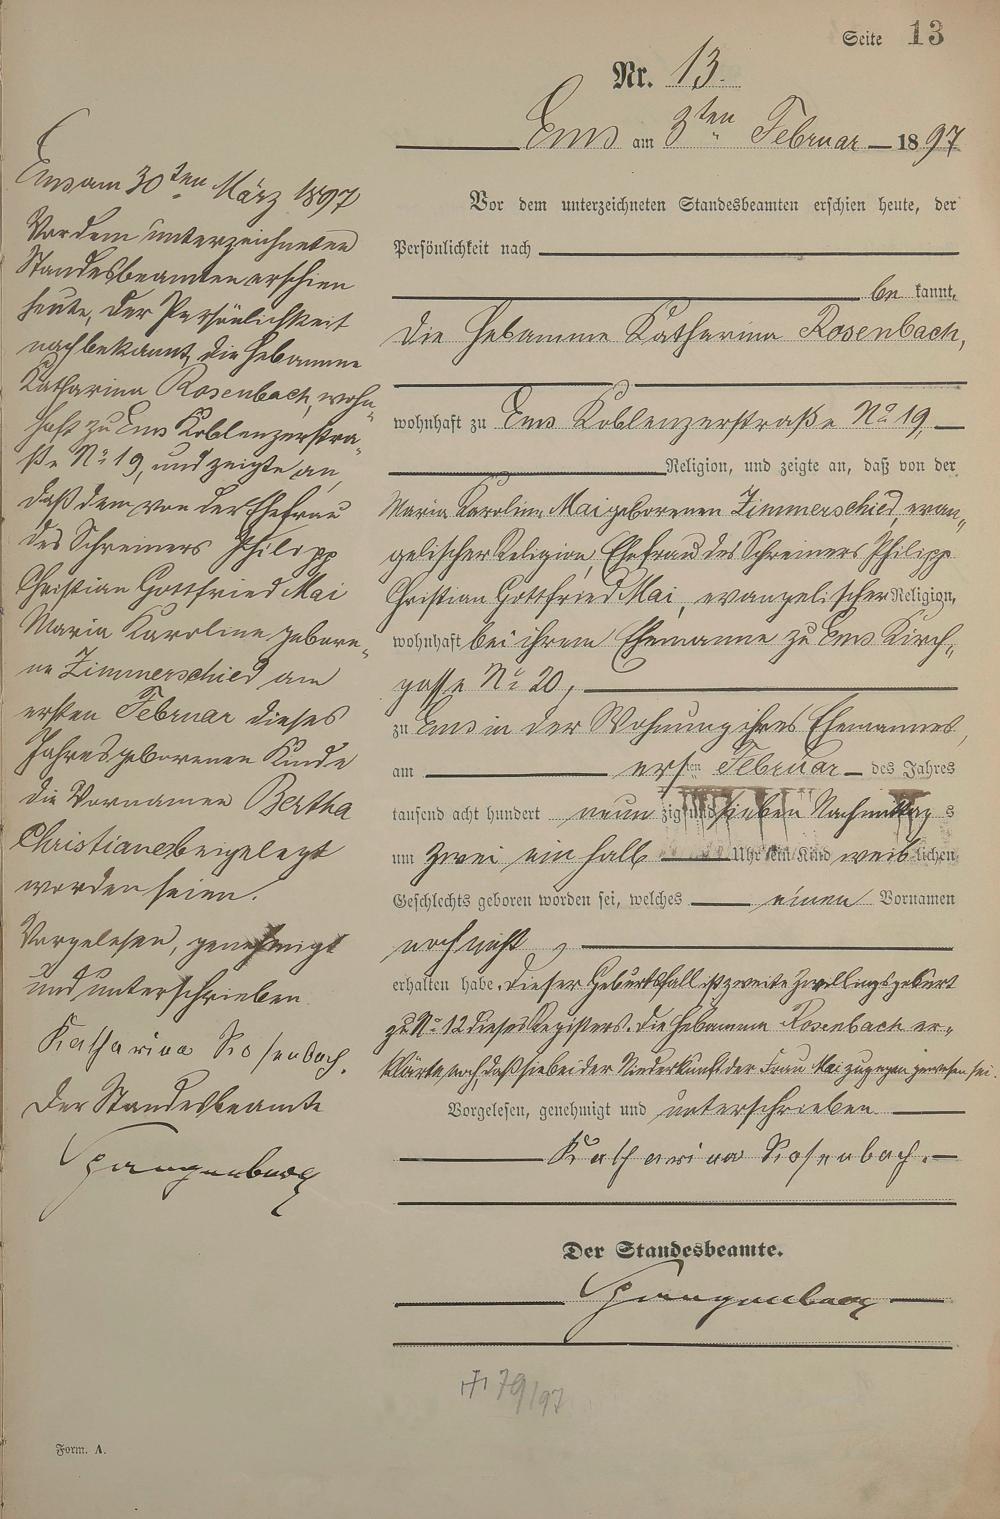 Seite 13
Nr. 13.
Ems am 3ten Februar 1897
Vor dem unterzeichneten Standesbeamten erschien heute, der
Persönlichkeit nach
be kannt,
die Hebamme Katharina Rosenbach,
wohnhaft zu Ems Koblenzerstraße No 19,
Religion, und zeigte an, daß von der
Maria Karoline Mai geborenen Zimmerschied, evan-
gelischer Religion, Ehefrau des Schreiners Philipp
Christian Gottfried Mai, evangelischer Religion,
wohnhaft bei ihrem Ehemanne zu Ems Kirch-
gasse No 20,
zu Ems in der Wohnung ihres Ehemannes,
am ersten Februar des Jahres
tausend acht hundert neunzig und sieben Nachmittags
um zwei ein halb Uhr ein Kind weiblichen
Geschlechts geboren worden sei, welches einen Vornamen
noch nicht
erhalten habe. Dieser Geburtsfall ist zweite Zwillingsgeburt
zu No 12 dieses Registers. Die Hebamme Rosenbach er-
klärte noch, daß sie bei der Niederkunft der Frau Mai zugegen gewesen sei.
Vorgelesen, genehmigt und unterschrieben
Katharina Rosenbach.
Der Standesbeamte.
Spangenberg
+ 79/97
Ems am 30ten März 1897
Vor dem unterzeichneten
Standesbeamten erschien
heute, der Persönlichkeit
nach bekannt, die Hebamme
Katharina Rosenbach, wohn-
haft zu Ems Koblenzerstra-
ße No 19, und zeigte an,
daß dem von der Ehefrau
des Schreiners Philipp
Christian Gottfried Mai
Maria Karoline gebore-
ne Zimmerschied am
ersten Februar dieses
Jahres geborenen Kinde
die Vornamen Bertha
Christiane beigelegt
worden seien.
Vorgelesen, genehmigt
und unterschrieben
Katharina Rosenbach.
Der Standesbeamte
Spangenberg
Form. A.